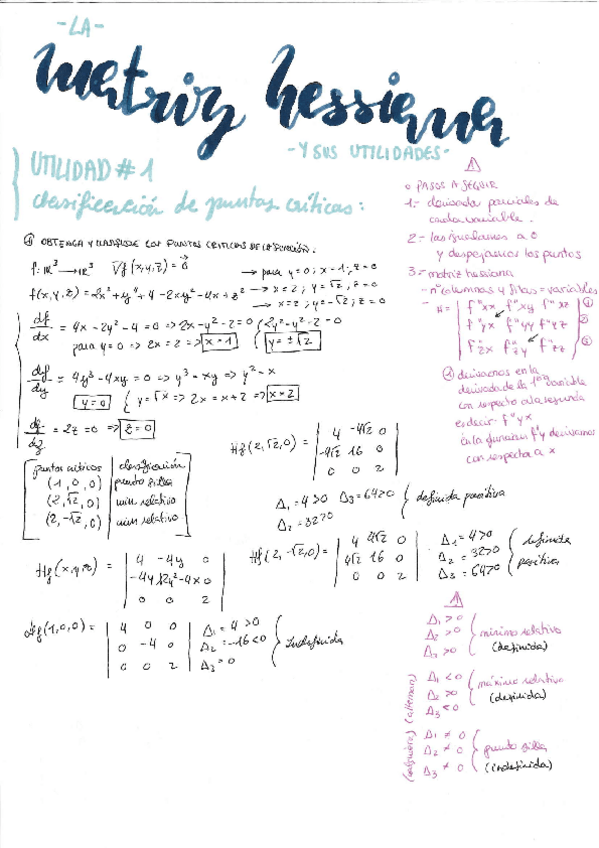 -LA-
matriz hessiana
-Y SUS UTILIDADES-
UTILIDAD #1
clasificación de puntos críticos:
① OBTENGA Y CLASIFIQUE LOS PUNTOS CRITICOS DE LA FUNCIÓN.
f: ℝ³ → ℝ³ ∇f(x,y,z) = 0⃗
→ para y=0; x=1; z=0
f(x,y,z) = 2x² + y⁴ + 4 - 2xy² - 4x + z²
→ x=2; y=√2, z=0
→ x=2; y=-√2; z=0
df/dx = 4x - 2y² - 4 = 0 => 2x - y² - 2 = 0 { 2y² - y² - 2 = 0
para y=0 => 2x = 2 => x=1 y = ±√2
df/dy = 4y³ - 4xy = 0 => y³ - xy => y² - x
y=0 { y=√x => 2x = x+2 => x=2
df/dz = 2z = 0 => z=0
puntos críticos | clasificación
(1,0,0) | punto silla
(2,√2,0) | min relativo
(2,-√2,0) | min relativo
Hf(2,√2,0) =
4 -4√2 0
-4√2 16 0
0 0 2
Δ₁ = 4>0 Δ3 = 64>0 { definida positiva
Δ2 = 32>0
Hf(x,y,z) =
4 -4y 0
-4y 12y²-4x 0
0 0 2
Hf(2,-√2,0) =
4 4√2 0
4√2 16 0
0 0 2
Δ1 = 4>0
Δ2 = 32>0
Δ3 = 64>0
definida
positiva
Hf(1,0,0) =
4 0 0
0 -4 0
0 0 2
Δ1 = 4 >0
Δ2 = -16 <0
Δ3 = 0
Indefinida
⚠
○ PASOS A SEGUIR
1.- derivada parciales de
cada variable.
2.- las igualamos a 0
y despejamos los puntos
3.- matriz hessiana
- nº columnas y filas = variables
- H =
f''xx f''xy f''xz ①
f''yx f''yy f''yz ②
f''zx f''zy f''zz ③
② derivamos en la
derivada de la 1era variable
con respecto a la segunda
es decir f''yx
en la función f'y derivamos
con respecto a x
⚠
Δ1 > 0
Δ2 > 0
Δ3 > 0
mínimo relativo
(definida)
(alternan)
Δ1 < 0
Δ2 > 0
Δ3 < 0
máximo relativo
(definida)
Δ1 ≠ 0
Δ2 ≠ 0
Δ3 ≠ 0
punto silla
(indefinida)